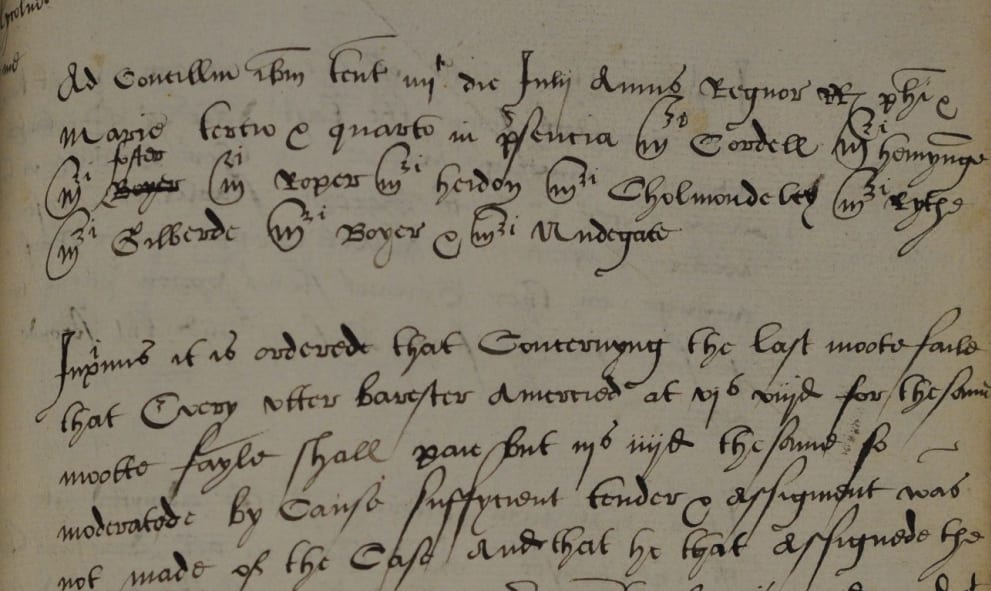 Ad Concillm ibm tent iiijt die Julij Annis Regnor RR phi &
Marie tercio & quarto in psencia mri Cordell mri hemynge
foster
mri Boyer mri Roper mri heidon mri Cholmondeley mri Rythe
mri Gilberde mri Boyer & mri Undegate
Inprimis it is orderede that Concernyng the last moote faile
that Every utter barester Amercied at vjs viijd for the same
mootte fayle shall paie but iijs iiijd the same so
moderatede by Cause suffycient tender & Assigment was
not made of the Case And that he that Assignede the